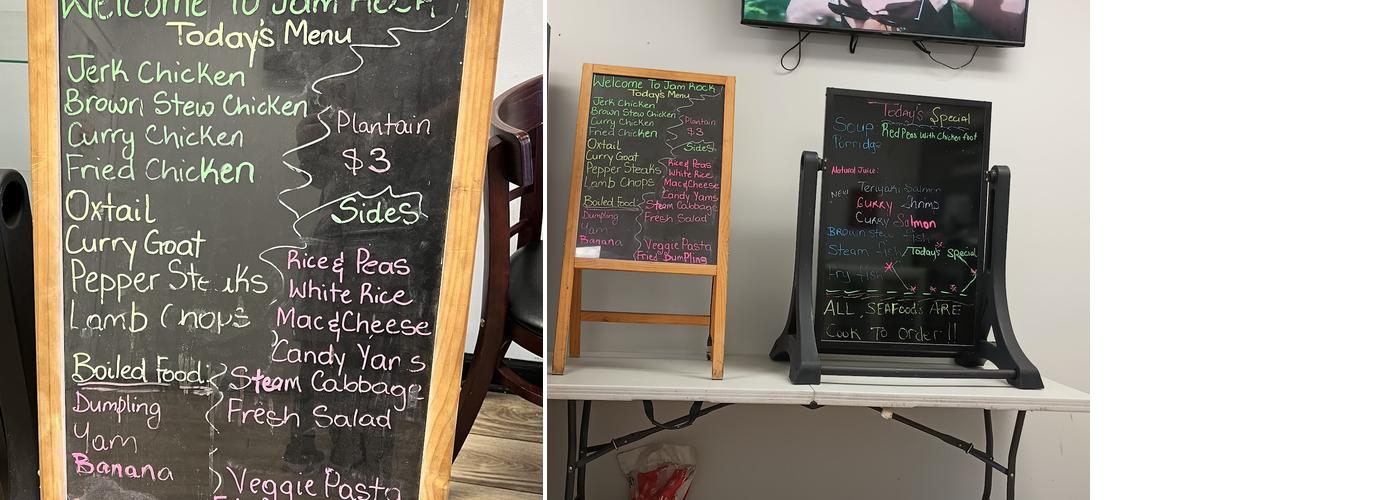 Welcome To Jam Rock
Today's Menu
Jerk Chicken
Brown Stew Chicken
Curry Chicken
Fried Chicken
Oxtail
Curry Goat
Pepper Steaks
Lamb Chops
Boiled Food:
Dumpling
Yam
Banana
Plantain
$3
Sides
Rice & Peas
White Rice
Mac & Cheese
Candy Yams
Steam Cabbage
Fresh Salad
Veggie Pasta
Welcome To Jam Rock
Today's Menu
Jerk Chicken
Brown Stew Chicken
Curry Chicken
Fried Chicken
Oxtail
Curry Goat
Pepper Steaks
Lamb Chops
Boiled Food:
Dumpling
Yam
Banana
Plantain
$3
Sides
Rice & Peas
White Rice
Mac & Cheese
Candy Yams
Steam Cabbage
Fresh Salad
Veggie Pasta
Fried Dumpling
Today's Special
Soup Red Peas with Chicken foot
Porridge
Natural Juice:
NEW Teriyaki Salmon
Curry Shrimp
Curry Salmon
Brown stew fish
Steam fish Today's special
Fry fish
ALL, SEAFoods ARE
Cook To order!!